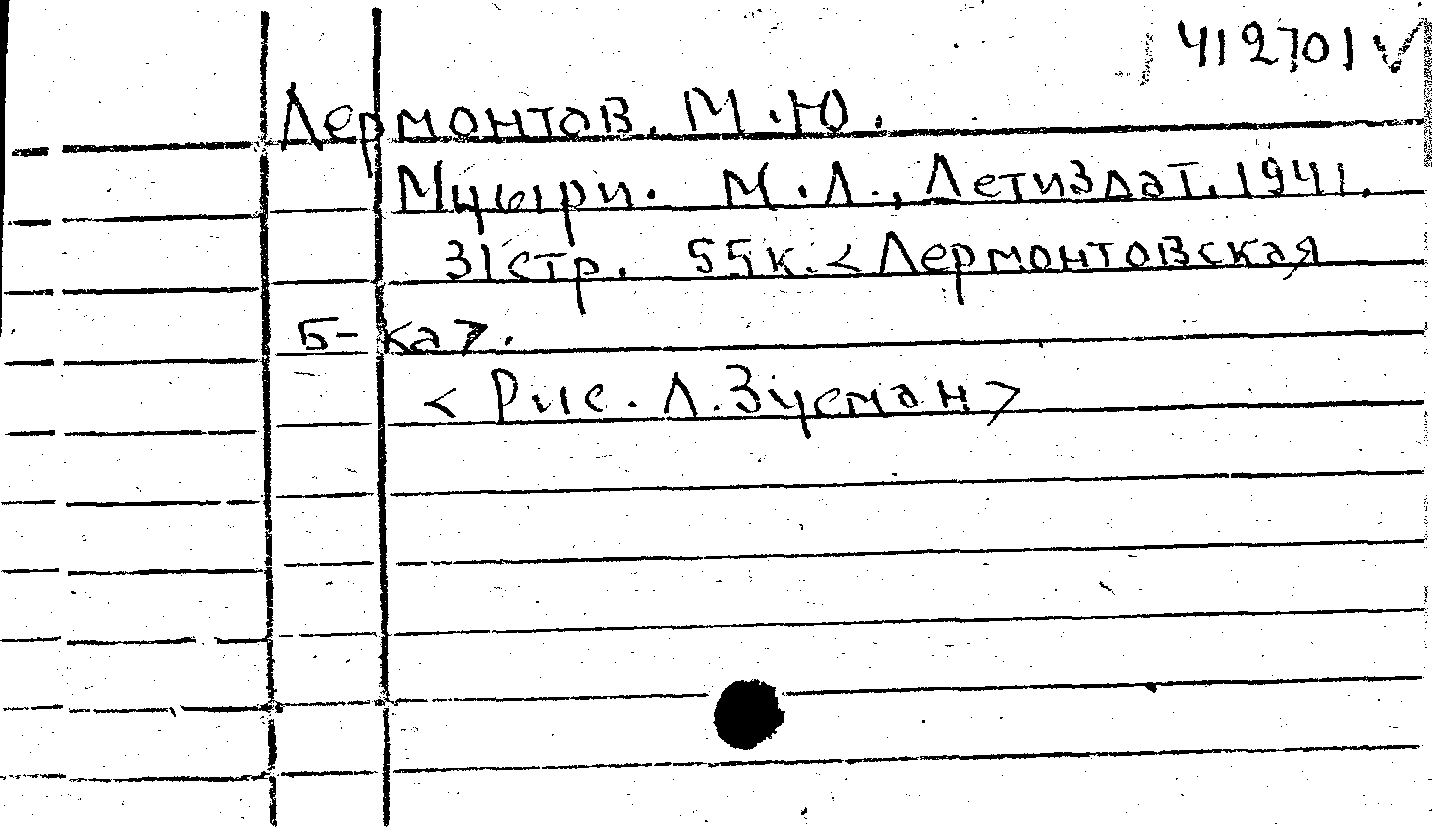 412701 V
Лермонтов. М.Ю.
Мцыри. М.Л., Детиздат. 1941.
31стр. 55к. <Лермонтовская
Б-ка>.
<Рис. Л. Зусман>